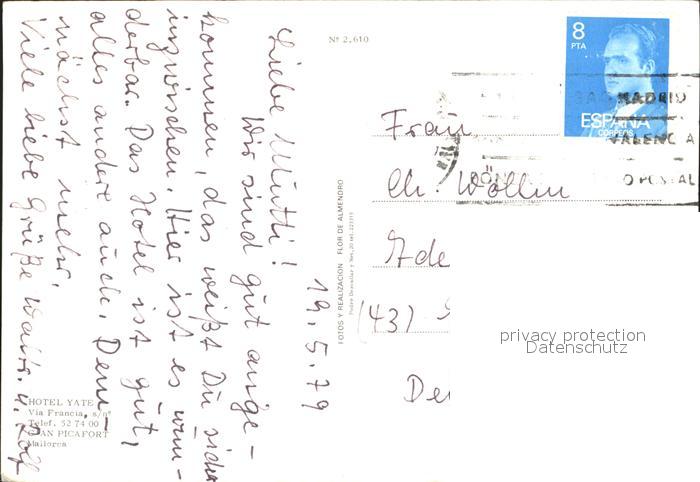 Nº 2.610
19.5.79
Liebe Mutti!
Wir sind gut ange-
kommen, das weißt Du sicher
inzwischen. Hier ist es wun-
derbar. Das Hotel ist gut,
alles andere auch. Dem-
nächst mehr.
Viele liebe Grüße Waltr. u. Rolf
HOTEL YATE
Via Francia, s/nº
Telef. 52 74 00
CAN PICAFORT
Mallorca
FOTOS Y REALIZACION FLOR DE ALMENDRO
8
PTA
ESPAÑA
CORREOS
MADRID
VALENCIA
POSTAL
Frau
Ch. Wöllm
Ade
(43)
De
privacy protection
Datenschutz